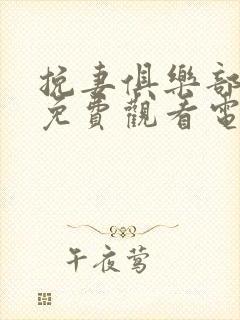 挽妻俱樂部
免費觀看電
午夜莺